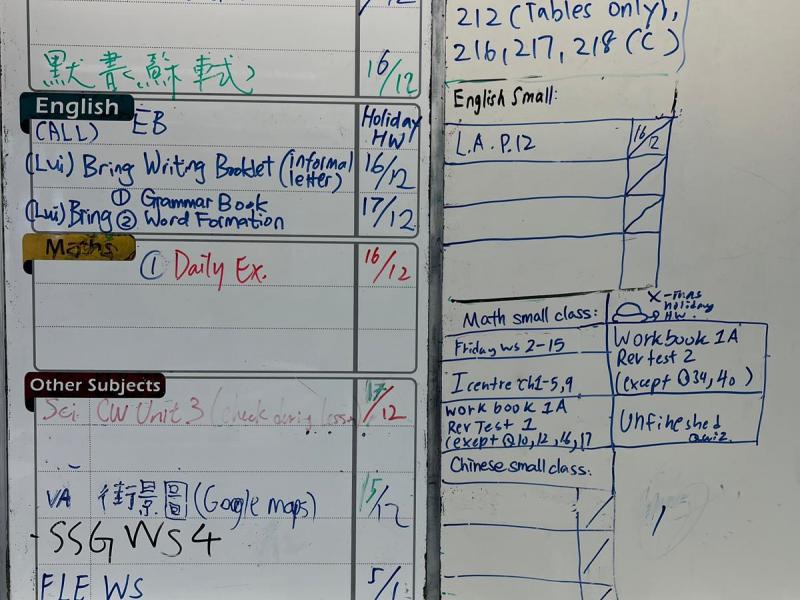 212 (Tables only),
216, 217, 218 (C)
16/12
English
(ALL) EB Holiday HW
(Lui) Bring Writing Booklet (informal letter) 16/12
(Lui) Bring ① Grammar Book
② Word Formation 17/12
Maths
① Daily Ex. 16/12
Other Subjects
Sci CW Unit 3 (check during lesson) 17/12
VA 街景圖 (Google maps) 15/12
SSG WS4
FLE WS 5/1
English Small:
L.A. P.12 16/12
Math small class:
X-mas
Holiday
HW.
Friday ws 2-15
Icentre ch1-5,9
Work book 1A
Rev Test 1
(except Q10, 12, 16, 17
Workbook 1A
Rev test 2
(except Q34, 40)
Unfineshed
Quiz
Chinese small class: